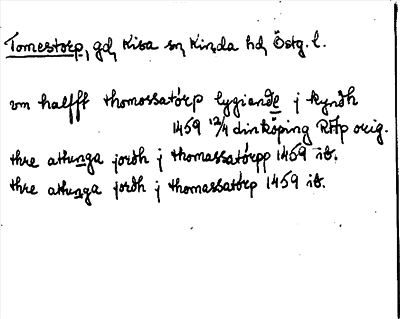 Tomestorp, gd, Kisa sn, Kinda hd, Östg. l.
vm halfft thomossatórp lygiandhe j kyndh
1459 12/4 Linköping RAp orig.
thre athunga jordh j thomassatórpp 1459 ib.
thre athunga jordh j thomassatórp 1459 ib.